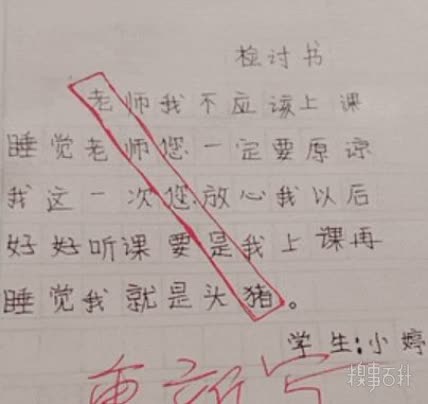 检讨书
老师我不应该上课
睡觉老师您一定要原谅
我这一次您放心我以后
好好听课要是我上课再
睡觉我就是头猪。
学生:小婷
重新写
糗事百科